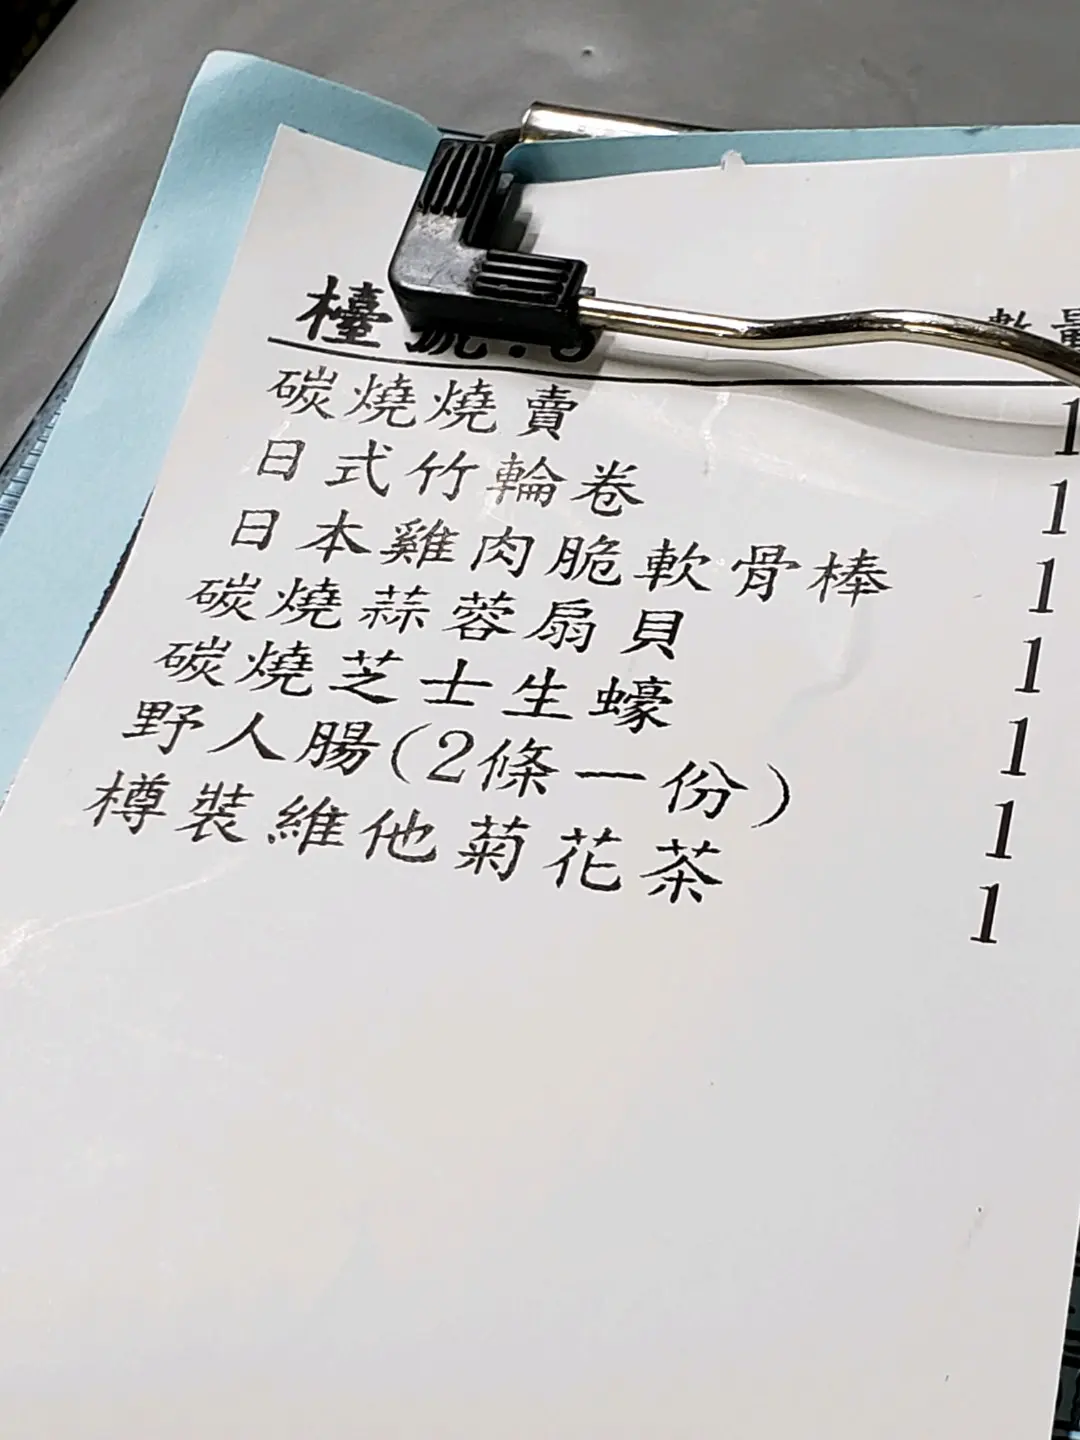 檯號:
數量
碳燒燒賣 1
日式竹輪卷 1
日本雞肉脆軟骨棒 1
碳燒蒜蓉扇貝 1
碳燒芝士生蠔 1
野人腸(2條一份) 1
樽裝維他菊花茶 1